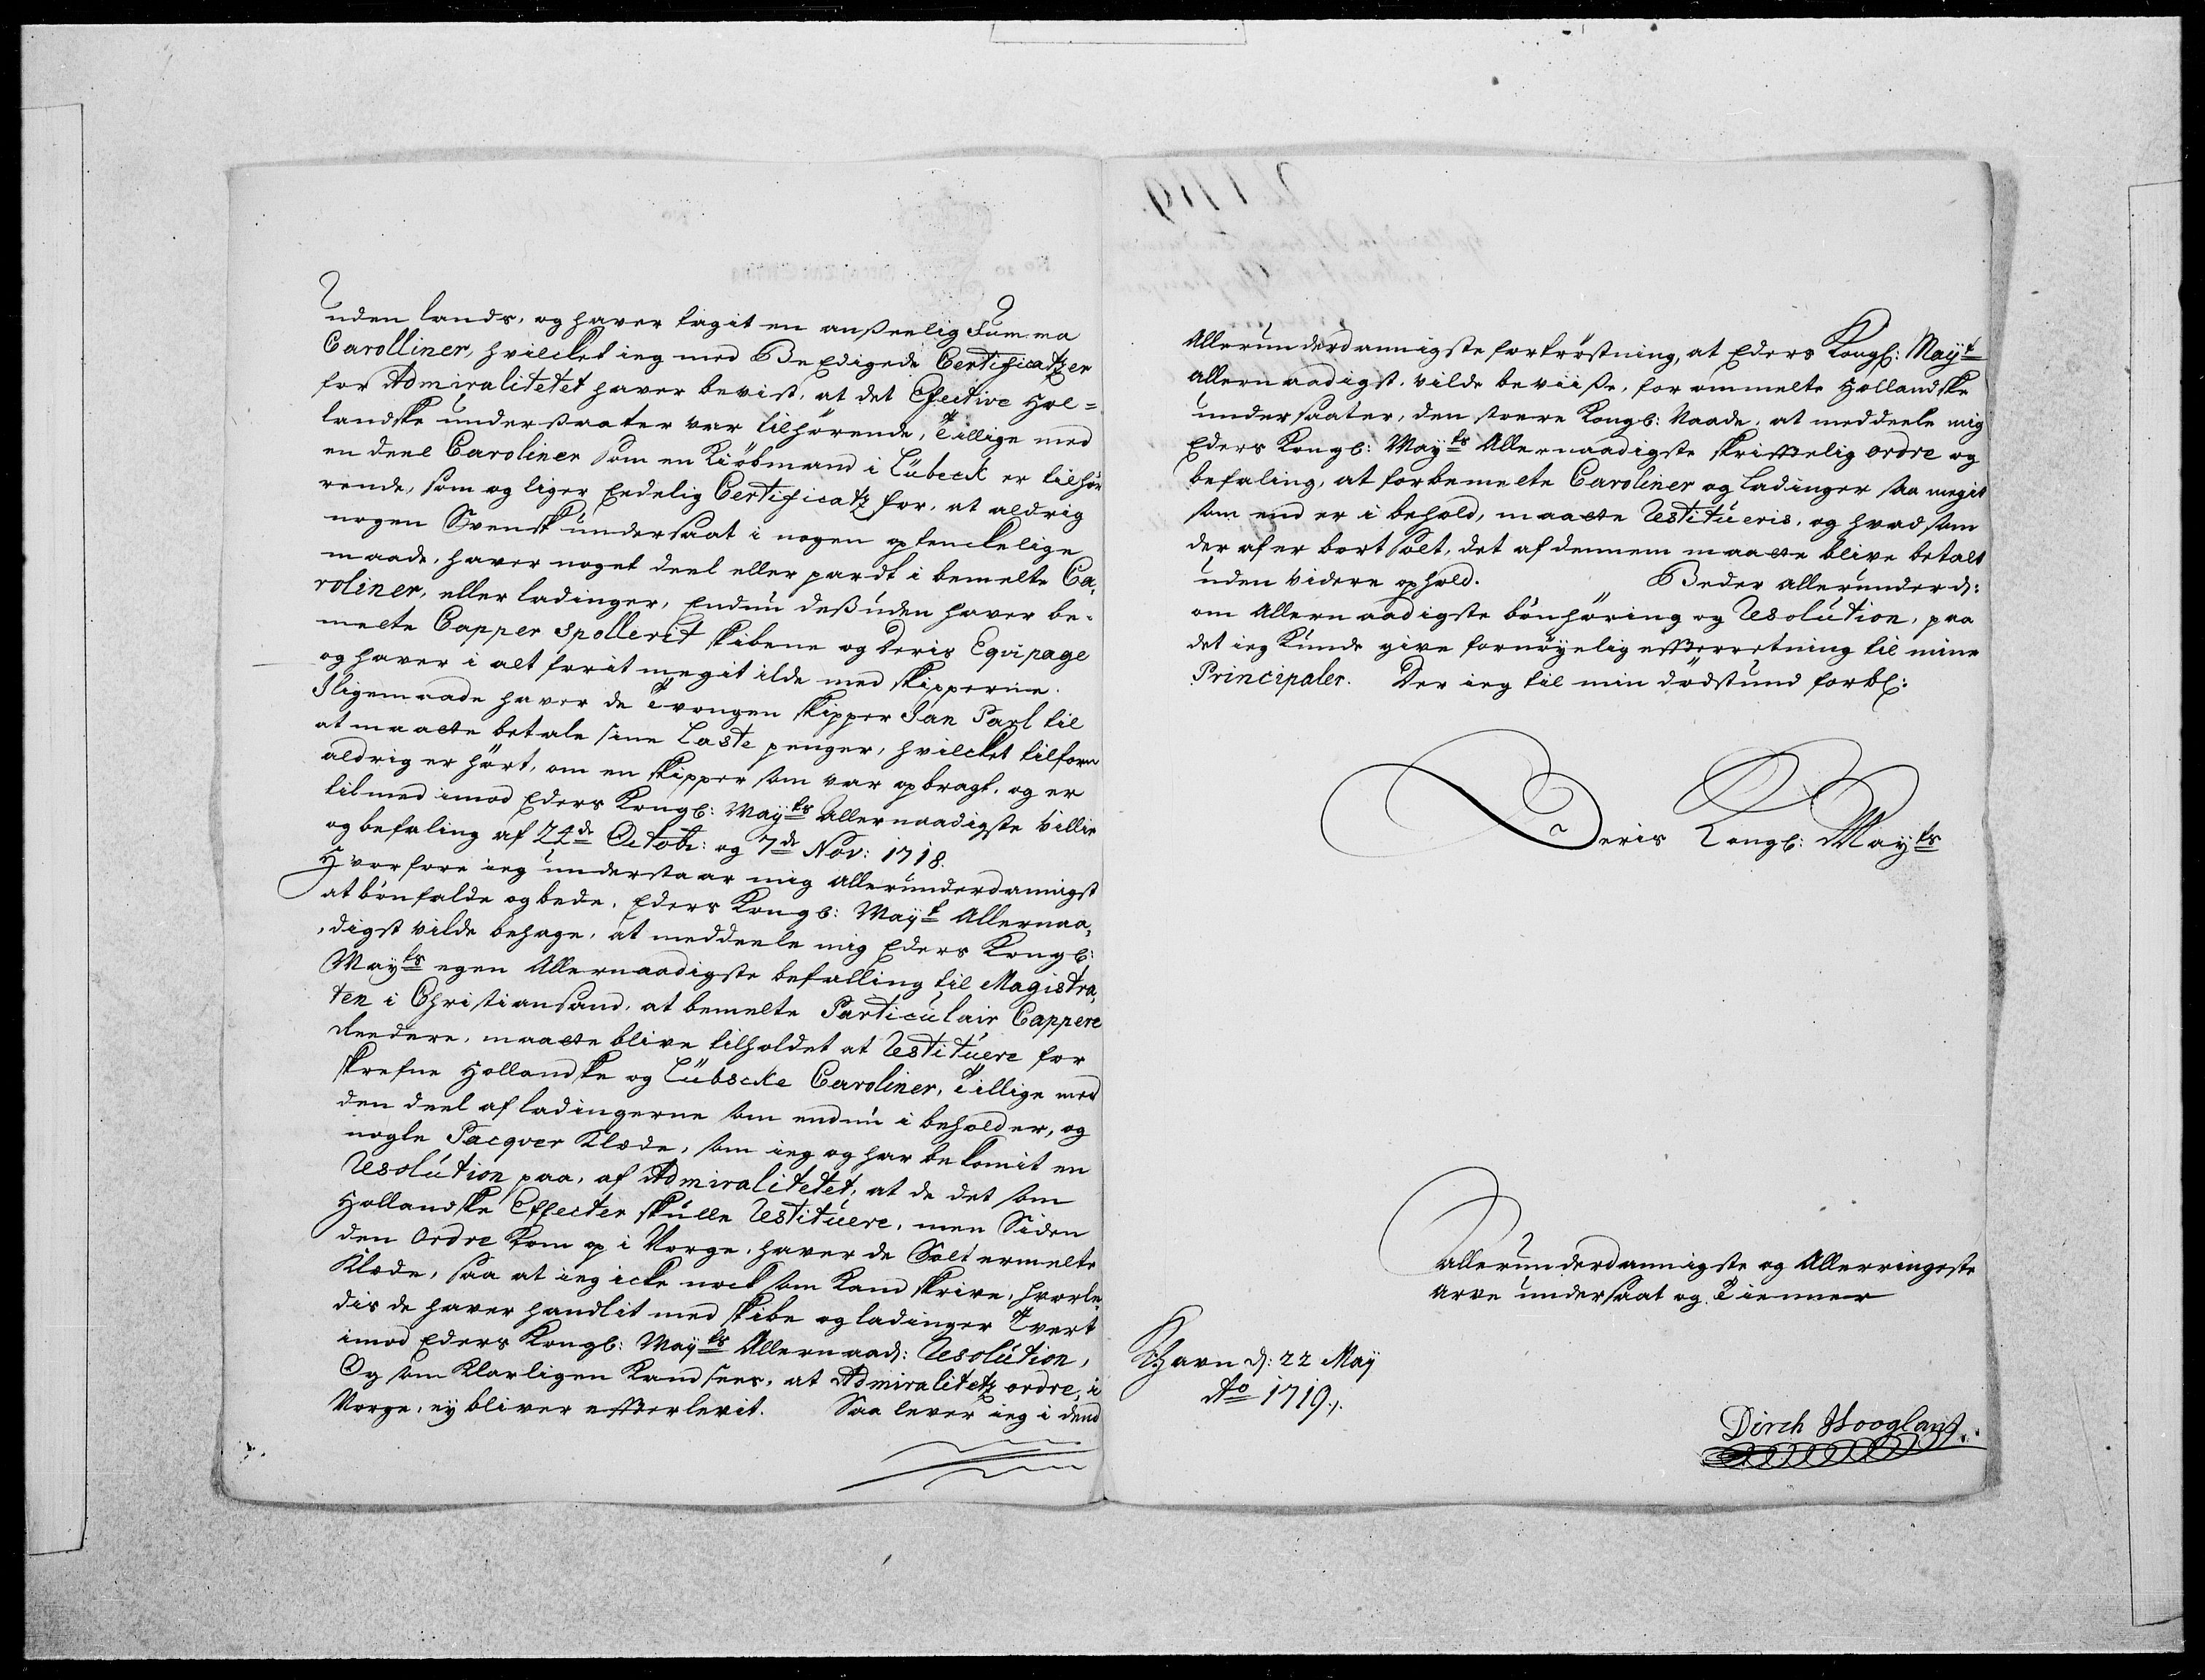 uden lands, og haver tagit en anseelig Summa
Carolliner, hvilcket ieg med Be Edigede Certificatzer
for Admiralitetet haver bevist, at det Efective Hol=
landske undersaater var tilhørende, Tillige med
en deel Caroliner som en Kiøbmand i Lübeck er tilhø
rende, som og liger Eedelig Certificatz for, at aldrig
nogen Svensk undersaat i nogen optenckelige
maade, haver noget deel eller pardt i bemelte Ca,
roliner, eller ladinger, Endnu desuden haver be=
melte Capper Spollerit skibene og deris Eqvipage
og haver i alt farit megit ilde med skipperne.
Iligemaade haver de Tvongen skipper Jan Parl til
at maatte betale sine Laste penger, hvilcket tilforn
aldrig er hørt, om en skipper som var opbragt, og er
tilmed imod Eders Kongl: Mayts Allernaadigste Villie
og befaling af 24de Octobr: og 7de Nov: 1718.
Hvorfore ieg understaar mig Allerunderdanigst
at bønfalde og bede, Eders Kongl: Mayt Allernaa,
digst vilde behage, at meddeele mig Eders Kongl:
Mayts egen Allernaadigste befalling til Magistra,
ten i Christiansand, at bemelte Particulair Cappere
Reedere, maatte blive tilholdet at Restituere for
skrefne Hollandske og Lübscke Caroliner, Tillige med
den deel af ladingerne som endnu i behold er, og
nogle Pacqver Klæde, som ieg og har bekomit en
Resolution paa, af Admiralitetet, at de det som
Hollandske Effecter skulle Restituere, men Siden
den Ordre kom op i Norge, haver de Solt ermelte
Klæde, saa at ieg icke nock som Kand skrive, hvorle,
dis de haver handlit med skibe og ladinger Tvert
imod Eders Kongl: Mayts Allernaad: Resolution,
Og som Klarligen Kand sees, at Admiralitetz ordre, i
Norge, ey bliver efterlevit. Saa lever ieg i dend
Allerunderdannigste fortrøstning, at Eders Kongl: Mayt
allernaadigst vilde beviise, for ommelte Hollandske
undersaater, den store Kongl: Naade, at meddeele mig
Eders Kongl: Mayts Allernaadigste skrifftelig ordre og
befaling, at forbemelte Caroliner og Ladinger saa megit
som end er i behold, maatte Restitueris, og hvad som
der af er bort solt, det af dennem maatte blive betalt
uden videre ophold. Beder allerunderd:
om Allernaadigste bønhøring og Resolution, paa
det ieg Kunde give fornøyelig efterretning til mine
Principaler. Der ieg til min dødstund forbl:
Deris Kongl: Mayts
allerunderdannigste og Allerringeste
arve undersaat og Tienner
Khavn d: 22 May
Ao 1719.
Dirch Hooglant